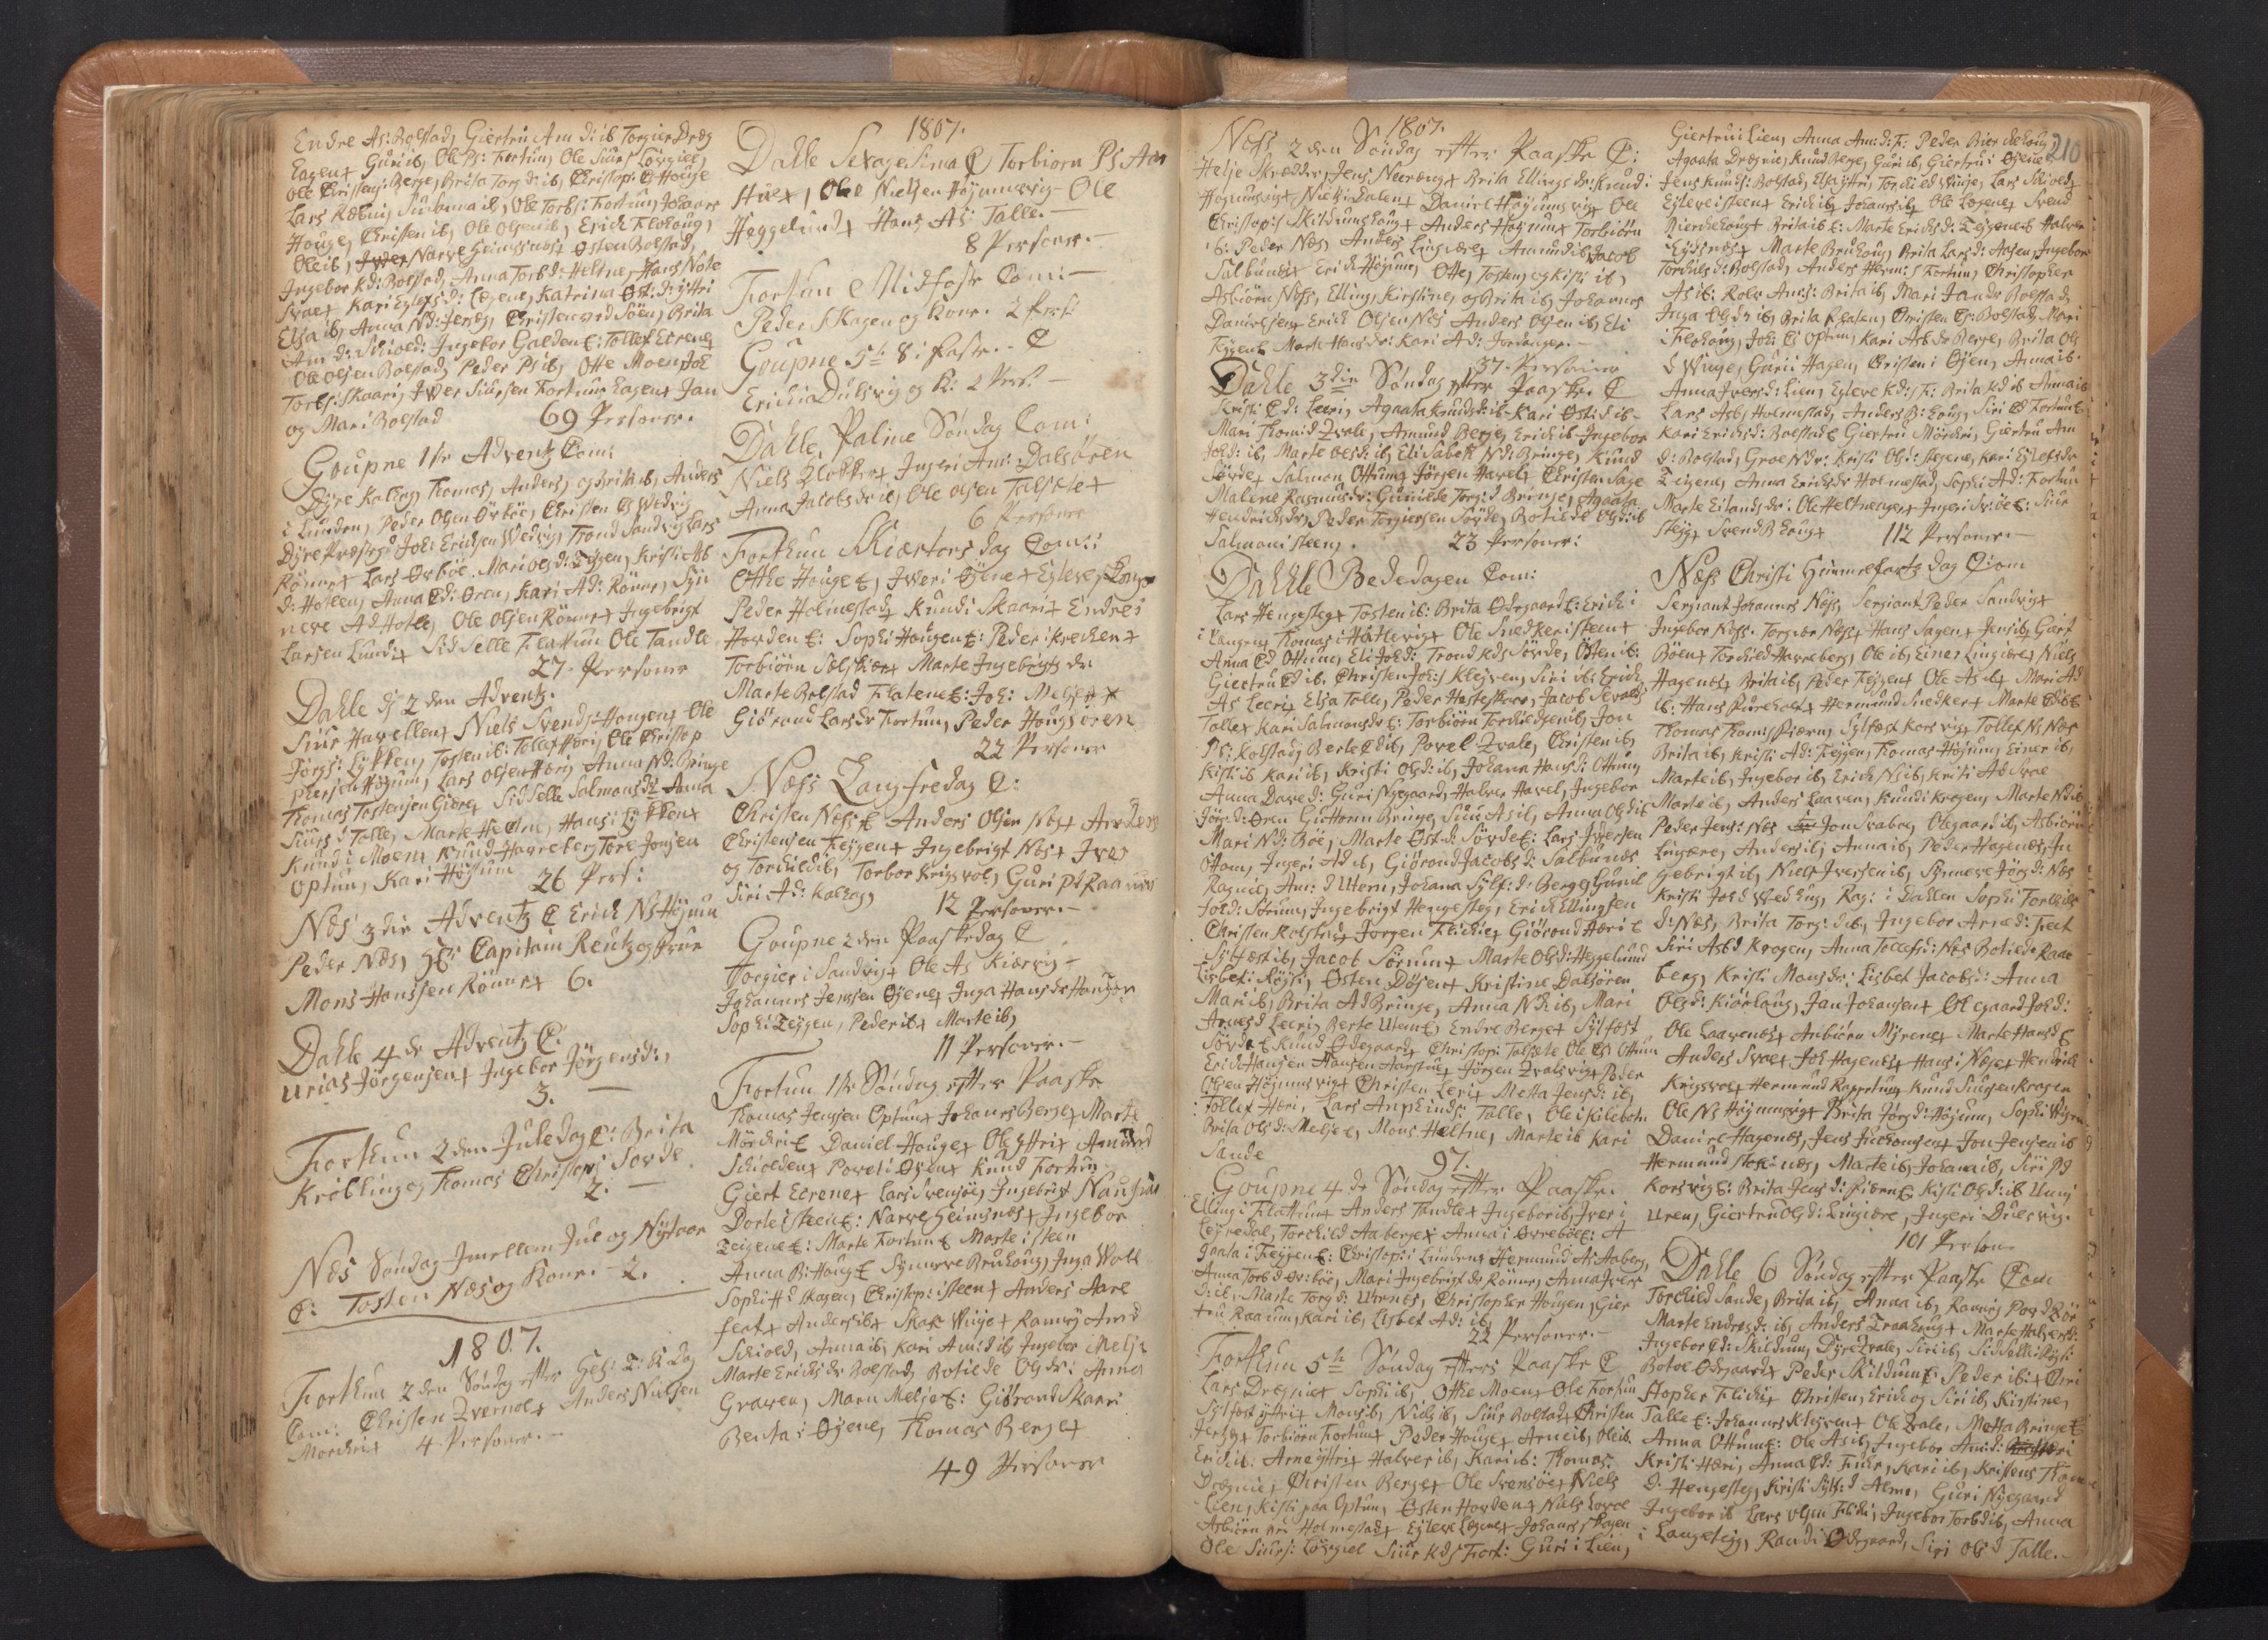 Endre As: Bolstad, Giertru Am d: ib Torgier Dræg
Eagen+ Guri ib, Ole Ps: Fortun, Ole Siurs Lövgiel,
Ole Christens: Berge, Brita Torg d: ib, Christop: Houge
Lars Röbni, ib, Ole Torbs: Fortun, Johanes
Houge, Christen ib, Ole Olsen ib, Erich Flohoug,
Ole ib, Narve Geimsnes+ Østen Bolstad,
Ingebor K d: Bolstad, Anna Torb d: Heltne, Hans Note
Svae+ Kari Eylefs d: Lægene, Katrina Øst: d: yttri
Elsa ib, Anna N d: Christen ved Söen, Brita
Am d: Skiold: Ingebor Galden E: Tollef Ecrene+
Ole Olsen Bolstad, Peder Ps ib, Otte Moen, Joh
Torbs: Skaari, Iver Siursen Fortun Eagen+ Jan
og Mari Bolstad 69 Personer.
Goupne 1ste Advents Com:
Dyre Kalhag, Thomas, Anders, og Brita ib, Anders
i Lunden, Peder Olsen Örböe, Christen Os Wedvig
Dyre Joh: Erichsen Wedvig, Trond Sandvig Lars
Rönne+ Lars Örböe. Mari Ols d: Teigen, Kristi As
d: Hollen, Anna C d: Øren, Kari A d: Rönne, Syn
neve A d Holle, Ole Olsen Rönne+ Ingebrigt
Larsen Lund+ Sidselle Flattun Ole Tandle
27 Personer
Dahle d: 2den Advents.
Siur Havellen+ Niels Svends: Hougen+ Ole
Jörgs: Lykken, Tosten ib: Tollef Höri, Ole Christop
phersen Höyum, Lars Olsen Höri Anna N d: Bringe
Thomas Tostensen Giære+ Sidselle Salmons d: Anna
Siurs d Talle, Marte Heltne, Hans i Lykken+
Knud i Moen+ Knud Havreberg Tore Jonsen
Optun, Kari Höyum 26 Pers:
Næs 3die Advents C Erich Ns Höyum
Peder Næs, Hr: Capitain Reutz og Frue
Mons Hanssen Rönne+ 6.
Dahle 4de Advents C:
Urias Jörgensen+ Ingebor Jörgensd:,
3.
Forthun 2den Juledag C: Brita
Krökling og Thomas Christops Sörde
2.
Næs Söndag Imellem Jul og Nytaar
C: Tosten Næs og Kone. 2.
1807.
Forthun 2den Söndag efter Hel: 3: K Dag
Com: Christen Kvernoe+ Anders Nielsen
Morchri+ 4 Personer.
1807.
Dahle Sexagesima C Torbiorn Ps Aar
Hue+, Olve Nielsen Höyumsvig Ole
Heggelund+ Hans As: Talle.
8 Personer.
Fortun Midfaste Com:
Peder Skagen og Kone. 2 Pers:
Goupne 5te S: i Faste. C
Erich i Dulsvig og K: 2 Pers:
Dahle, Palme Söndag Com:
Niels Klokker+ Ingeri Am: Dalsören
Anna Jacobsdr ib, Ole Olsen Talsete+
6 Personer
Forthun Skiærtorsdag Com:
Otthe Houge E, Iver i Øyene+ Eyleve Longe
Peder Holmestad+ Knud i Skaari+ Endre i
Hovden E: Sophi Hougen E: Peder i Krecken+
Torbiörn Sælsbier+ Marte Ingebrigts dr
Marte Bolstad Flaten E: Joh: Melje+ +
Giörond Larsdr Fortun, Peder Hougsören
22 Personer
Næss Langfredag C:
Christen Næss E Anders Olsen Næs+ Anders
Christensen Feygen+ Ingebrigt Næs+ Iver
og Torchild ib, Torbor Krigsvol, Guri P d Raaum
Siri A d: Kalhag, 12 Personer.
Goupne 2den Paaskedag C
Torgier i Sandvig+ Ole As Kiærvig
Johannes Jenssen Øyene+ Inga Hans dr Haugen
Sophi Teygen, Peder ib+ Marte ib,
11 Personer.
Fortun 1ste Söndag efter Paaske
Thomas Jenssen Optun+ Johanes Berge+ Marte
Mörchri E Daniel Houge+ Ole Yttri+ Amund
Schiolden+ Povel i Øyen+ Knud Fortun
Giert Ecrene+ Lars Svensöe, Ingebrigt Naugum
Dorte i Steen E: Narve Geimsnes+ Ingebor
Teigene E: Marte Fortun E Marte i Steen
Anna B: Houg E Synneve Bruhoug, Inga Woll
Sophi H d Skagen, Christop: i Steen+ Anders Aare
feet+ Anders ib+ Skak Winje+ Ranvey Am d
Schiold, Anna ib, Kari Am: d ib Ingebor Melje
Marte Erichs dr Bolstad, Botilde Ols dr: Anna
Graven, Marn Melje E: Giörond Skaari
Benta i Øyene, Thomas Berge+
49 Personer
1807.
Næss 2den Söndag efter Paaske C:
Helje Skræder, Jens Neeræng+ Brita Ellings dr: Knud i
Höyumsvig+ Niels i Dalen+ Daniel Höyumsvig+ Ole
Christops Skildumshoug+ Anders Höyum+ Torbiörn
ib: Peder Næs, Anders Lingiære+ Amund ib Jacob
Salbunes+ Erich Höyum, Otte, Tosten, og Kisti ib,
Asbiörn Næss, Elling, Kirstine, og Brita ib, Johannes
Danielsen+ Erich Olsen Næs Anders Olsen ib, Eli
Feygen E Marte Hans dr: Kari A d: Jordanger.
37 Personer
Dahle 3die Söndag efter Paaske C
Kristi C d: Leeri, Agaata Knuds dr: ib Kari Øst: d ib
Mari Thom: d Kvale, Amund Berge, Erich ib Ingebor
Joh d: ib, Marte Ols d: ib, Elisabeth N d: Bringe, Knud
Sörde+ Salmon Ottum+ Jörgen Havel+ Christen Sage
Malene Rasmus dr: Gunilde Torg: d Bringe, Agaata
Hendrichs dr, Peder Torgiersen Sörde, Botilde Ols d: ib
Salmon i Steen, 23 Personer:
Dahle Bededagen Com:
Lars Hengesteg+ Tosten ib: Brita Ødegaard E: Erich i
i Langen, Thomas i Hatlevig+ Ole Snedker i Steen+
Anna C d Ottum, Eli Joh d: Trond K ds Sörde, Østen ib:
Giertru C d ib. Christen Joh: s Kleyven, Siri ib, Erich
As Leeri, Elsa Talle, Peder Hesteskoer, Jacob Sevals
Talle+ Kari Salmons dr E: Torbiörn Torchildsen ib, Jon
Ps: Kolstad, Berte C d ib, Povel Kvale, Christen ib,
Kisti ib Kari ib, Kristi Ols d: ib, Johana Hans d: Ottum
Anna Dave d: Guri Nygaard, Halver Havel, Ingebor
Jörg: d: Øren Guttorm Bringe, Siur As ib, Anna Ols d ib
Mari N d: Böe, Marte Øst d: Sörde E: Lars Iversen
Ottum, Ingeri A d ib, Giörond Jacobs d: Salbunes
Ragnil, Am: d Utern, Johana Sylf: d: Berge, Gunil
Jo d: Sörum, Ingebrigt Hengesteg, Erich Ellingsen
Christen Kolstad, Jörgen Flichi+ Giörond Höri E
Sylfest ib, Jacob Sörum+ Marte Ols d: Heggelund
Lisbet i Röysi, Østen Dösen+ Kristine Dalsören
Mari ib, Brita A d Bringe, Anna N d ib, Mari
Arnes d Leeri, Berte Uten E, Endre Berge+ Sylfest
Sörde E Knud Ødegaard+ Christop: Talsete Ole Os Ottum
Erich Hansen Hansen Harstue+ Jörgen Kvalsvig+ Peder
Olsen Höyumsvig+ Christen Leri+ Metta Jens d: ib,
Tollef Höri, Lars Arnfinds: Talle, Ole i Kilebotn
Brita Ols d: Melje E, Mons Heltne, Marte ib Kari
Sande 97.
Goupne 4de Söndag efter Paaske.
Elling i Flattun+ Anders Tandle+ Ingebor ib, Iver i
Leyredal, Torchild Aaberge+ Anna i Örreböe E: A
gaata i Feygen E: Christop: i Lunden+ Hermund As Aaberg,
Anna Torb d Ör: böe, Mari Ingebrigts dr Rönne, Anna Iver
d: ib, Marte Torg d: Urnes, Christopher Hougen, Gier
tru Raaum, Kari ib, Lisbet A d: ib,
22 Personer.
Forthun 5te Söndag efters Paaske C
Lars Drægnie+ Sophi ib, Otthe Moen+ Ole Fortun
Sylfest yttri+ Mons ib, Niels ib, Siur Bolstad+ Christen
Torbiörn Fortun+ Peder Houge+ Arne ib, Ole ib.
Erich ib: Arne yttri+ Halver ib, Kari ib: Thomas
Drægnie+ Christen Berge+ Ole Svensöe+ Niels
Lien, Kisti paa Optun, Østen Hovden+ Niels Eorve
Asbiörn paa Holmestad+ Eyleve Lægene+ Johanes Skagen
Ole Siurs: Lövgiel Siur K ds Fort: Guri i Lien,
210
Giertru i Lien, Anna Am: d: F: Peder Bierchehoug
Agaata Drægnie, Knud Berge, Guri ib, Giertru i Øyene
Jens Knuds: Bolstad, Elsa yttri, Torchild Winje, Lars Skiold+
Eyleve i Steen+ Erich ib+ Johanes ib+ Ole Lægene+ Svend
Bierchehoug+ Brita ib E: Marte Erichs d: Teygene E Halver
Eydsnes+ Marte Bruhoug, Brita Lars d: Aasen, Ingebor
Torchils d: Bolstad, Anders Herm: s Fortun, Christopher
As ib: Rolv Am: s: Brita ib, Mari Jan dr Bolstad,
Inga Ols d: ib, Brita Flaten, Christen Cs: Bolstad, Mari
Flohoug, Joh: Cs Optun, Kari Asb dr Berge, Brita Ols
d Winje, Guri i Hagen, Christen i Øyen, Anna ib.
Anna Ivers d: Lien, Eyleve K d: F: Brita K d ib Anna ib
Lars Asbs Holmestad, Anders B: Houg, Siri C d Fortun E
Kari Erichs d: Bolstad E Giertru Mörchri, Giertru Am
d: Bolstad, Groe N dr: Kristi Ols d: Lægene, Kari Eylefs dr
Teigene, Anna Erichs dr Holmestad, Sophi A d: Fortun
Marte Eilands dr: Ole Heltneng+ Ingeri Svensöe E: Siur
Steyg, Svend R Houg+ 112 Personer.
Næss Christi Himmelfarts Dag Com
Sergiant Johannes Næss, Sergiant Peder Sandvig+
Ingebor Næss. Torgier Næs+ Hans Sagen+ Jens ib, Giert
Böen+ Torchild Havreberg, Ole ib, Einer Lingiære+ Niels
Hagenes+ Brita ib, Peder Feygen+ Ole As ib+ Mari A d
ib: Hans Hermund Snedker+ Marte C d ib E
Thomas Thoms: Sylfest Korsvig+ Tollef Ns Næs
Brita ib, Kristi A d: Feygen, Thomas Höyum, Einer ib,
Marte ib, Ingebor ib, Erich Ns ib, Kristi A d Svae
Marte ib, Anders Laaven, Knud i Krogen, Marte N d ib
Peder Jens: Næs Jon Svaberg Olegaard ib, Asbiörn
Lingære, Anders ib, Anna ib, Peder Hagenes+ In
gebrigt ib, Niels Iversen ib, Synneve Jörg d: Næs
Kristi Joh d Wedhus, Rag: i Dahlen Sophi Torkils
d: Næs, Brita Torg: d ib, Ingebor Arne d: Feet
Siri Asb d Krogen, Anna Tollefs d: Næs Botilde Raae
berg, Kristi Mons dr: Lisbet Jacobs d: Anna
Ols d: Kiærlaug, Jan Johansen+ Olegaard Joh d:
Ole Laavenes+ Anbiörn Myrene+ Marte Hans d E
Anders Svae+ Joh Hagenes+ Hans i Næse+ Hendrich
Krigsvoe+ Hermund Rappetun+ Knud Siursen Krogen
Ole Ns Höyumsvig+ Brita Jörg d: Höyum, Sophi
Daniel Hagenes, Jens Jon Jensen ib
Hermund Marte ib, Johana ib, Siri P d
Korsvig E: Brita Jens d: Kisti Ols d: ib Unni
Uren, Giertru Ols d: Lingiære, Ingeri Dulsvig.
101 Person
Dahle 6 Söndag efter Paaske Com
Torchild Sande, Brita ib, Anna ib, Ranvey Pov d Kör
Marte Endres d: ib, Anders Kraahoug+ Marte Halvers d:
Ingebor C d: Skildum, Dyre Kvale, Siri ib, Sidselle i Röysi
Botol Ødegaard+ Peder Skildum E: Peder ib: + Chri
stopher Flichi+ Christen, Erich og Siri ib, Kirstine,
Talle E: Johannes Kleyven+ Ole Kvale, Metta Bringe E
Anna Ottum E: Ole As ib, Ingebor Am: d:
Kristi Höri, Anna C d: Fuhr, Kari ib, Kristens Thom
d. Hengesteg, Kristi Sylf: d Alme, Guri Nygaard
Ingebor ib Lars Olsen Flichi, Ingebor Torb d ib, Anna
i Langeteyg, Randi Ødegaard, Siri Ols d Talle.